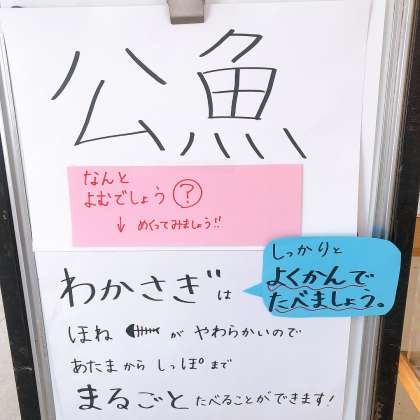 公魚
なんと
よむでしょう?
↓ めくってみましょう!!
しっかりと
よくかんで
たべましょう。
わかさぎは
ほね が やわらかいので
あたまから しっぽまで
まるごと たべることができます!